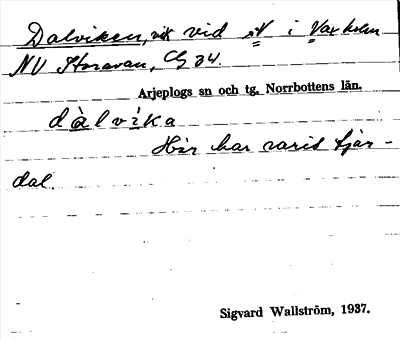 Dalviken, vik vid N i Vaxholm
NV Storavan, Cg 34.
Arjeplogs sn och tg. Norrbottens län.
dàlvika
Här har varit tjär-
dal.
Sigvard Wallström, 1937.